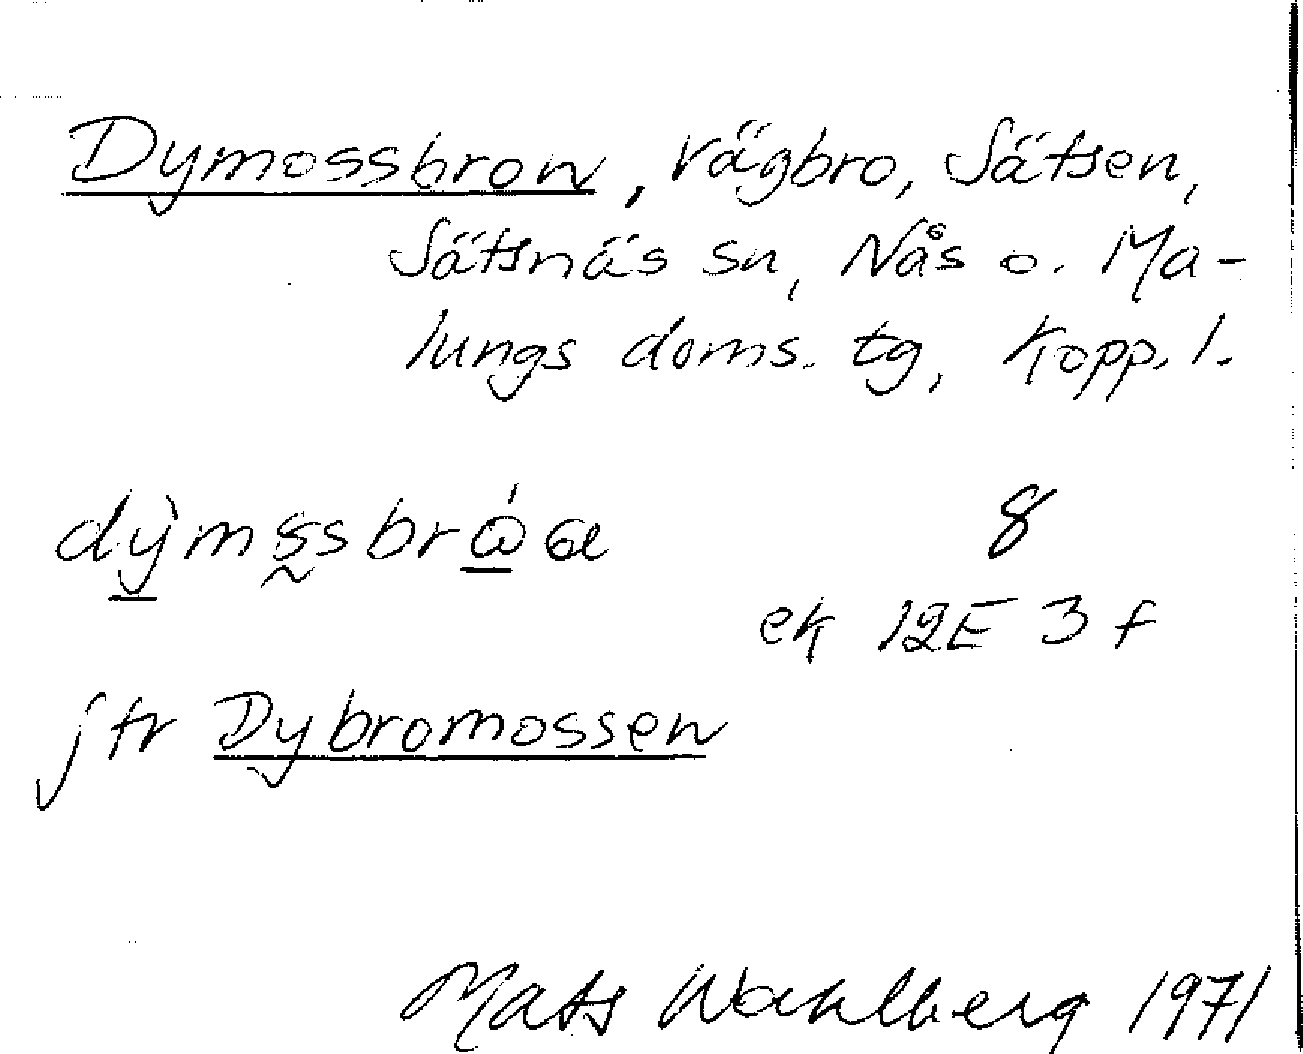 Dymossbron, vägbro, Säfsen,
Säfsnäs sn, Nås o. Ma-
lungs doms. tg, Kopp. l.
8
ek 12E 3 f
jfr Dybromossen
Mats Wahlberg 1971